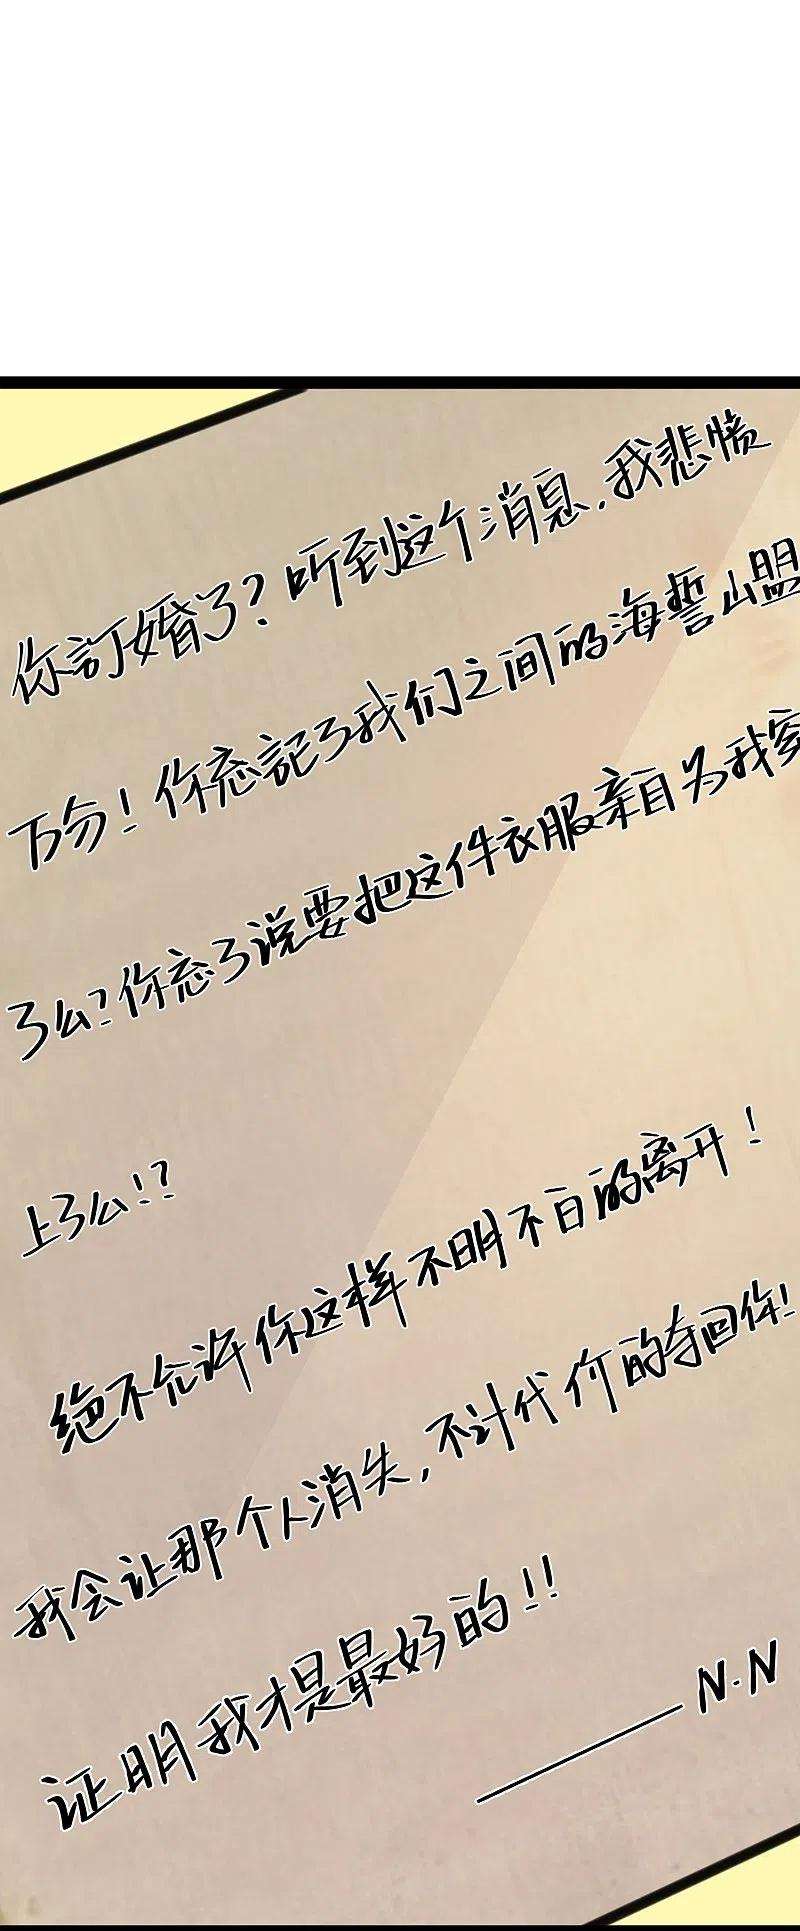 你訂婚了?听到这个消息,我悲愤
万分!你忘記了我们之间的海誓山盟
了么?你忘了说要把这件衣服亲自为我穿
上了么!?
绝不允许你这样不明不白的离开!
我会让那个人消失,不计代价的夺回你!
证明我才是最好的!!
——N.N